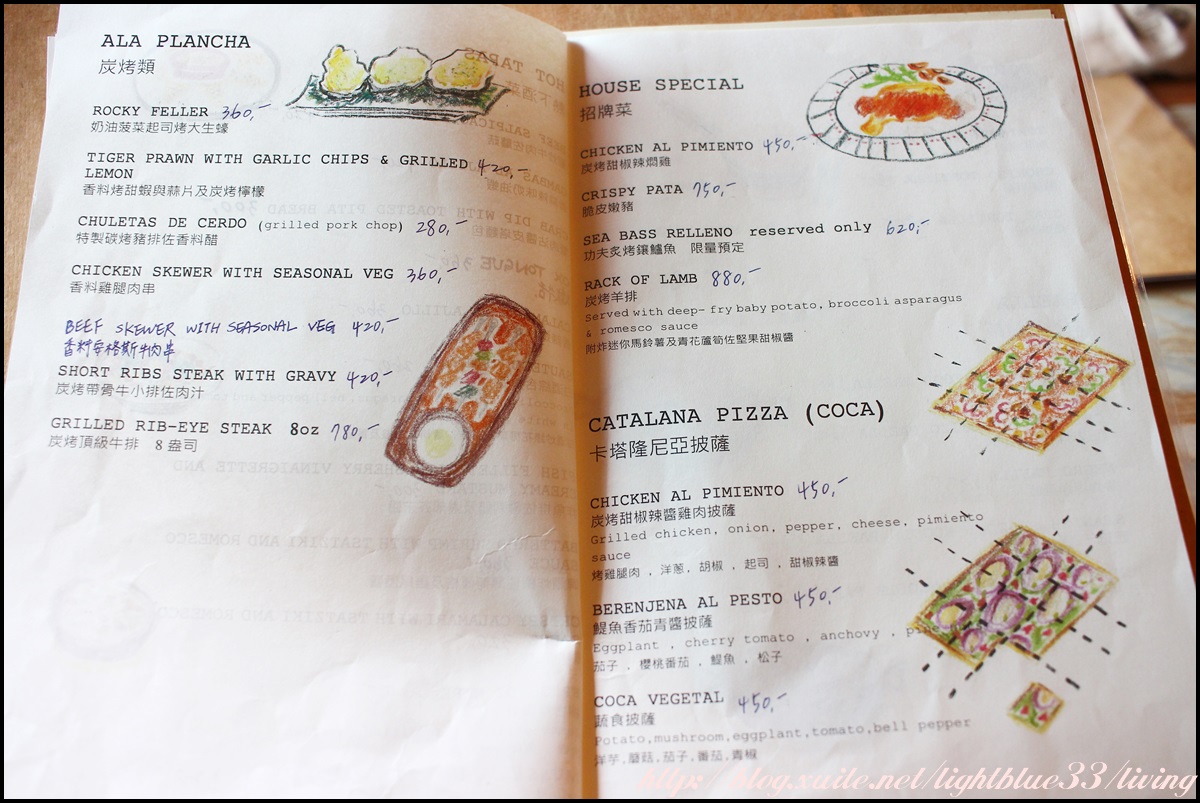 ALA PLANCHA
炭烤類
ROCKY FELLER 360,-
奶油菠菜起司烤大生蠔
TIGER PRAWN WITH GARLIC CHIPS & GRILLED 420,-
LEMON
香料烤甜蝦與蒜片及炭烤檸檬
CHULETAS DE CERDO (grilled pork chop) 280,-
特製碳烤豬排佐香料醋
CHICKEN SKEWER WITH SEASONAL VEG 360,-
香料雞腿肉串
BEEF SKEWER WITH SEASONAL VEG 420,-
香料安格斯牛肉串
SHORT RIBS STEAK WITH GRAVY 420,-
炭烤帶骨牛小排佐肉汁
GRILLED RIB-EYE STEAK 8oz 780,-
炭烤頂級牛排 8 盎司
HOUSE SPECIAL
招牌菜
CHICKEN AL PIMIENTO 450,-
炭烤甜椒辣燜雞
CRISPY PATA 750,-
脆皮嫩豬
SEA BASS RELLENO reserved only 620,-
功夫炙烤鑲鱸魚 限量預定
RACK OF LAMB 880,-
炭烤羊排
Served with deep- fry baby potato, broccoli asparagus
& romesco sauce
附炸迷你馬鈴薯及青花蘆筍佐堅果甜椒醬
CATALANA PIZZA (COCA)
卡塔隆尼亞披薩
CHICKEN AL PIMIENTO 450,-
炭烤甜椒辣醬雞肉披薩
Grilled chicken, onion, pepper, cheese, pimiento
sauce
烤雞腿肉 , 洋蔥, 胡椒 , 起司 , 甜椒辣醬
BERENJENA AL PESTO 450,-
鯷魚香茄青醬披薩
Eggplant , cherry tomato , anchovy ,
茄子 , 櫻桃番茄 , 鯷魚 , 松子
COCA VEGETAL 450,-
蔬食披薩
Potato,mushroom,eggplant,tomato,bell pepper
洋芋,蘑菇,茄子,番茄,青椒
http://blog.xuite.net/lightblue33/living